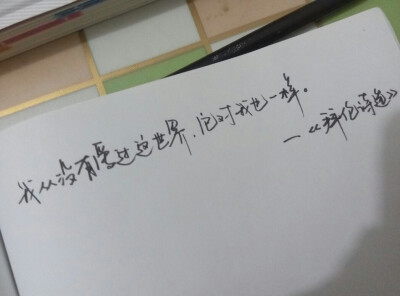 我从没有爱过这世界,它对我也一样。
—《拜伦诗选》